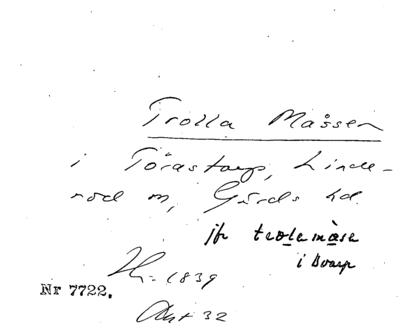 Trolla Måssen
i Törastorp, Linde-
röd sn, Gärds hd.
jfr trolamåse
i Svarp
1839
Nr 7722.
32